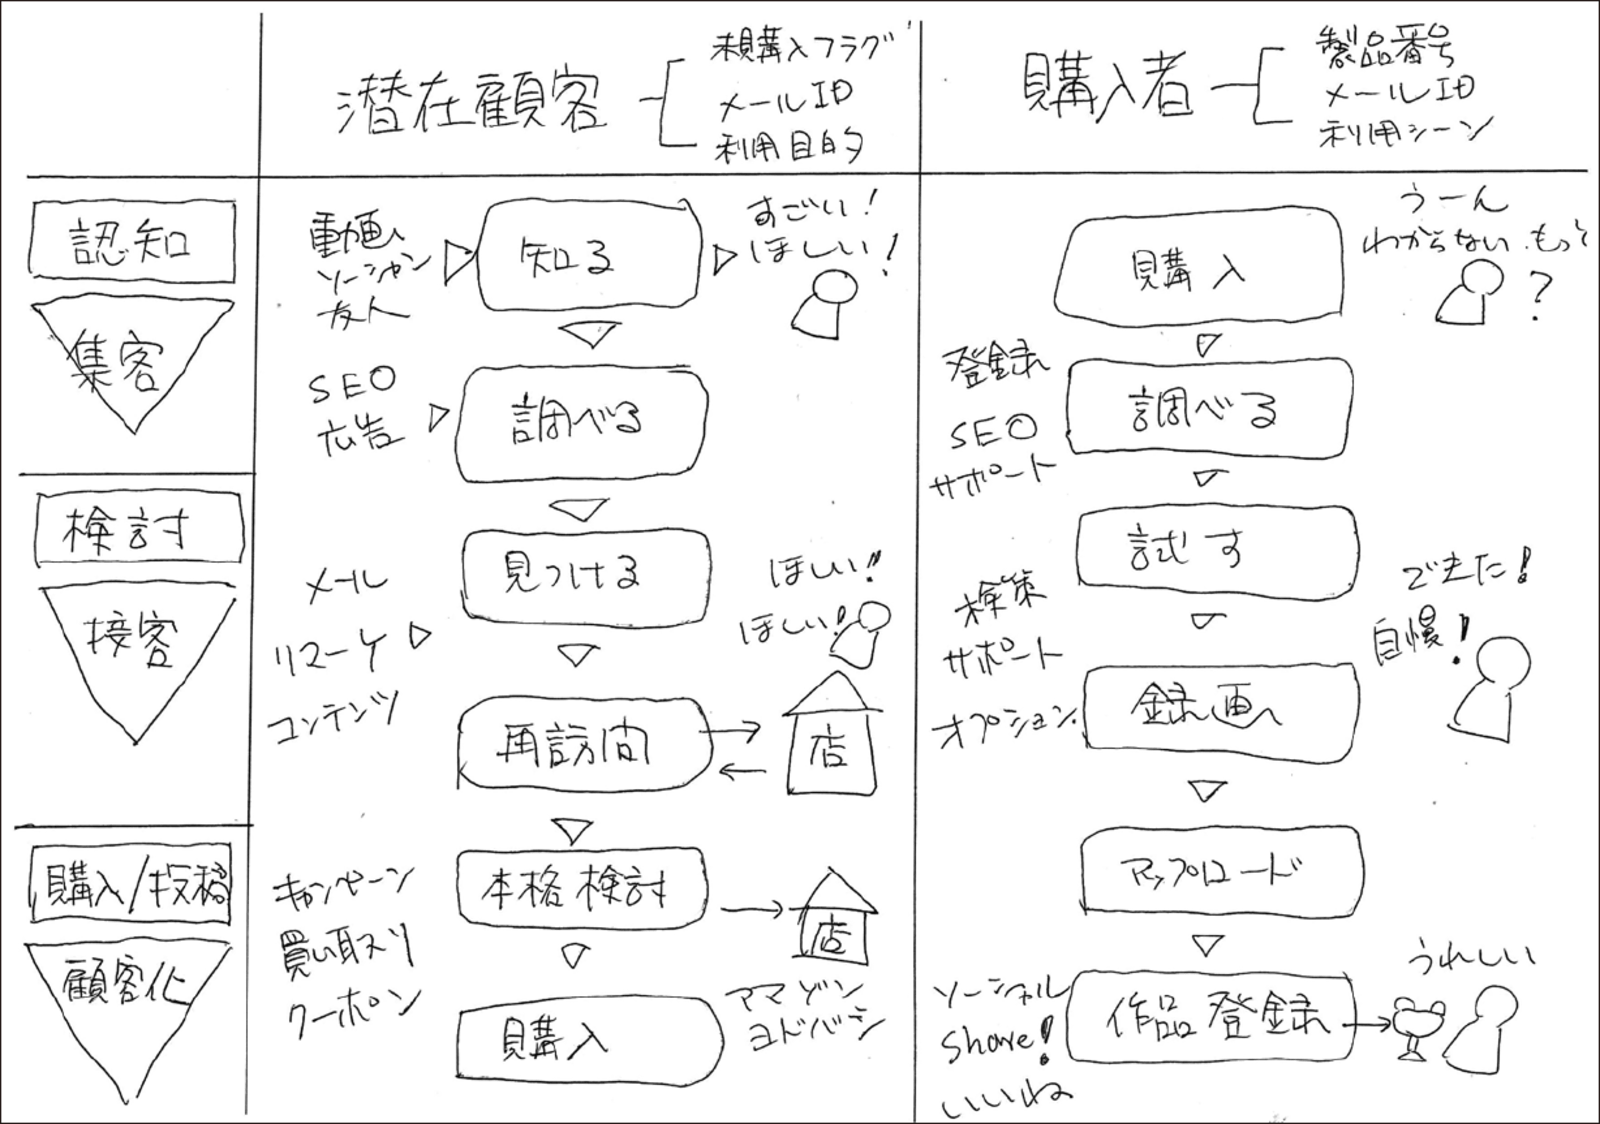 潜在顧客
未購入フラグ
メールID
利用目的
購入者
製品番号
メールID
利用シーン
認知
集客
動画
ソーシャル
友人
知る
すごい！
ほしい！
SEO
広告
調べる
購入
うーん
わからない もっと
?
登録
SEO
サポート
調べる
検討
接客
メール
リマーケ
コンテンツ
見つける
ほしい!!
ほしい!!
再訪問
店
試す
検索
サポート
オプション
録画
できた！
自慢！
アップロード
購入/投稿
顧客化
キャンペーン
買い取り
クーポン
本格検討
店
購入
アマゾン
ヨドバシ
ソーシャル
Share!
いいね
作品登録
うれしい